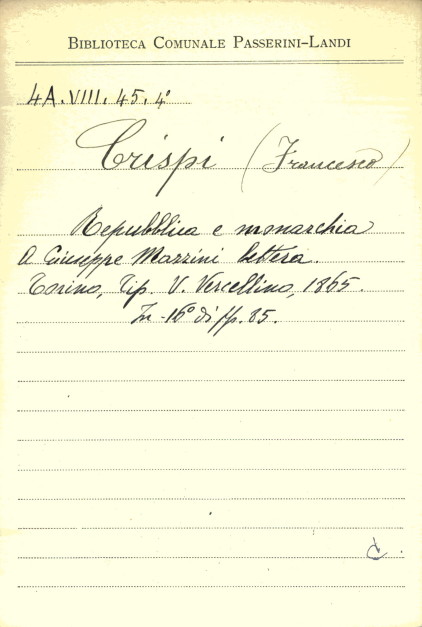 BIBLIOTECA COMUNALE PASSERINI-LANDI
4A.VIII.45.4°
Crispi (Francesco)
Repubblica e monarchia
A Giuseppe Mazzini lettera.
Torino, Tip. V. Vercellino, 1865.
In-16° di pp. 85.
C.